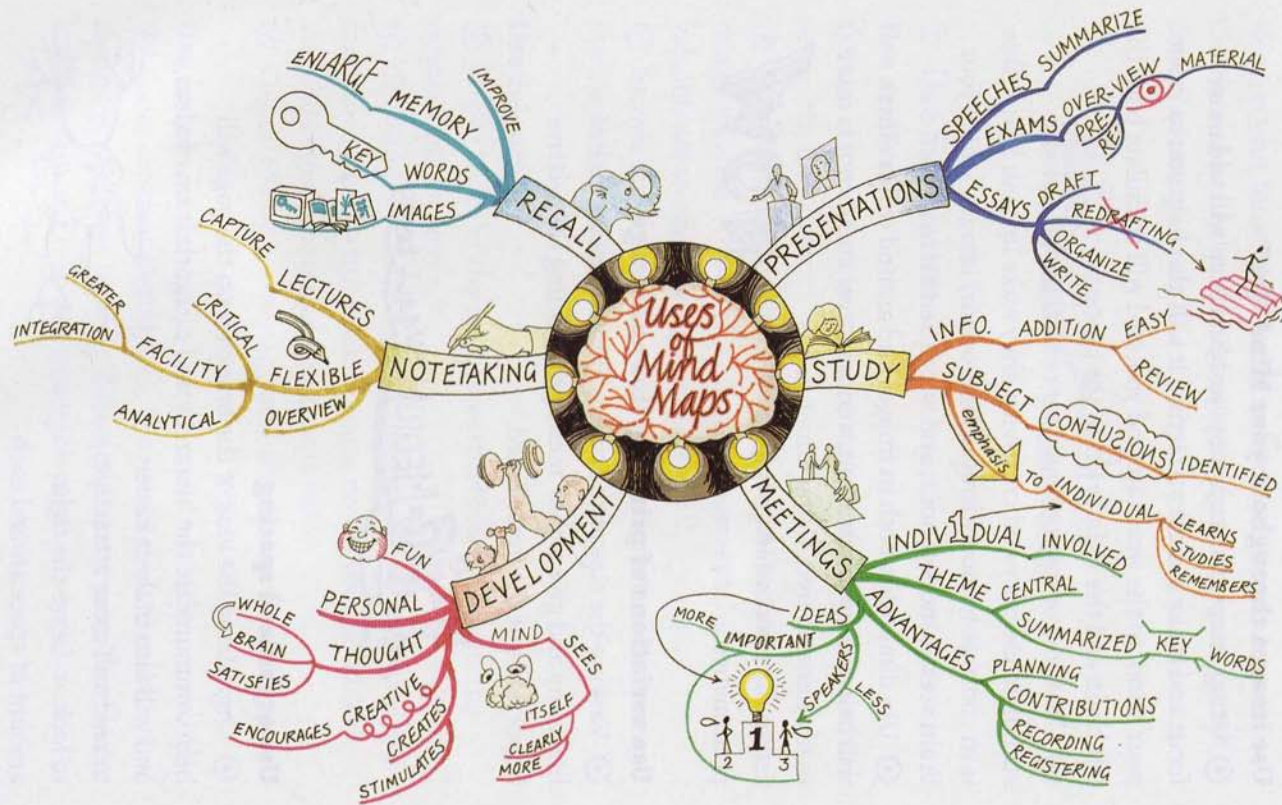 Uses
of
Mind
Maps
RECALL
IMPROVE
MEMORY
ENLARGE
WORDS
KEY
IMAGES
PRESENTATIONS
SPEECHES SUMMARIZE
EXAMS OVER-VIEW MATERIAL
PRE-
RE-
ESSAYS
DRAFT
REDRAFTING
ORGANIZE
WRITE
STUDY
INFO. ADDITION EASY
REVIEW
SUBJECT CONFUSIONS IDENTIFIED
emphasis
TO INDIVIDUAL LEARNS
STUDIES
REMEMBERS
MEETINGS
INDIV1DUAL INVOLVED
THEME CENTRAL
SUMMARIZED KEY WORDS
ADVANTAGES PLANNING
CONTRIBUTIONS
RECORDING
REGISTERING
IDEAS
MORE IMPORTANT
SPEAKERS
LESS
2 1 3
DEVELOPMENT
FUN
PERSONAL
THOUGHT
WHOLE
BRAIN
SATISFIES
CREATIVE
ENCOURAGES
CREATES
STIMULATES
MIND SEES
ITSELF
CLEARLY
MORE
NOTETAKING
LECTURES
CAPTURE
FLEXIBLE
CRITICAL
FACILITY
GREATER
INTEGRATION
ANALYTICAL
OVERVIEW